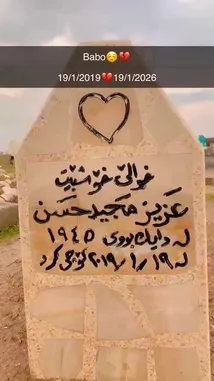 Babo☺️💔
19/1/2019💔19/1/2026
خوالێ خۆشبێت
عزیز مجید حسن
لە دایك بووی ١٩٤٥
لە ١٩/١/٢٠١٩ كۆچی كرد